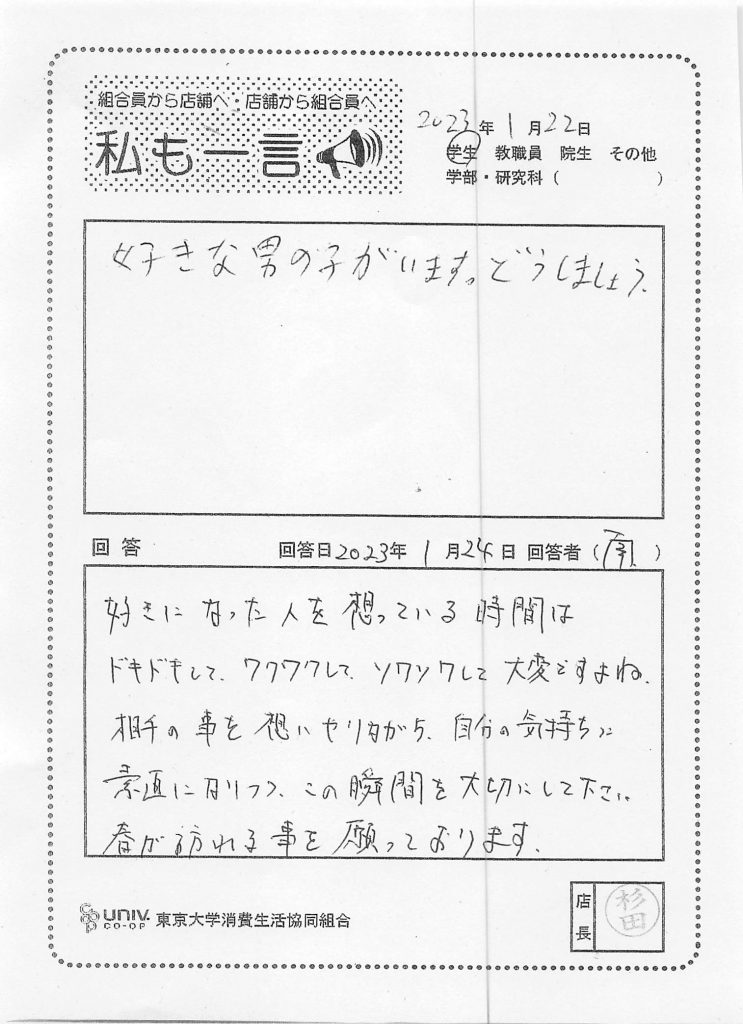 組合員から店舗へ・店舗から組合員へ
私も一言
2023年 1月22日
学生 教職員 院生 その他
学部・研究科（ ）
好きな男の子がいます。どうしましょう。
回答 回答日2023年 1月24日 回答者（南）
好きになった人を想っている時間は
ドキドキして、ワクワクして、ソワソワして大変ですよね。
相手の事を想いやりながら、自分の気持ちに
素直になりつつ、この瞬間を大切にして下さい。
春が訪れる事を願っております。
coop UNIV. CO-OP 東京大学消費生活協同組合
店長 杉田